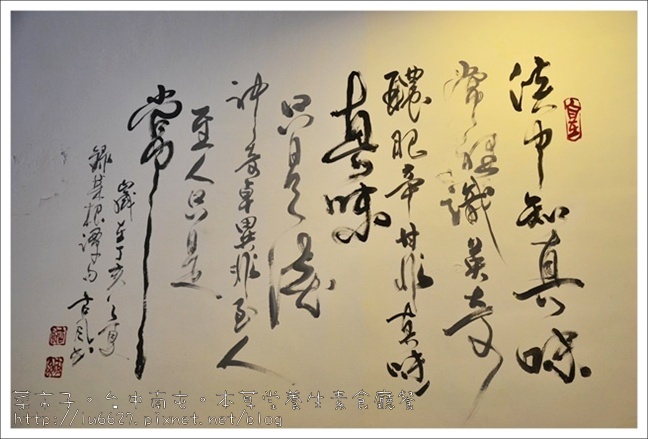 淡中知真味
常裡識英奇
醲肥辛甘非真味
真味
只是淡
神奇卓異非至人
至人只是
常
歲至丁亥之夏
錄菜根譚句 古風书
菜市子。台中商店。本草堂養生素食廳餐
http://lu6627.pixnet.net/blog